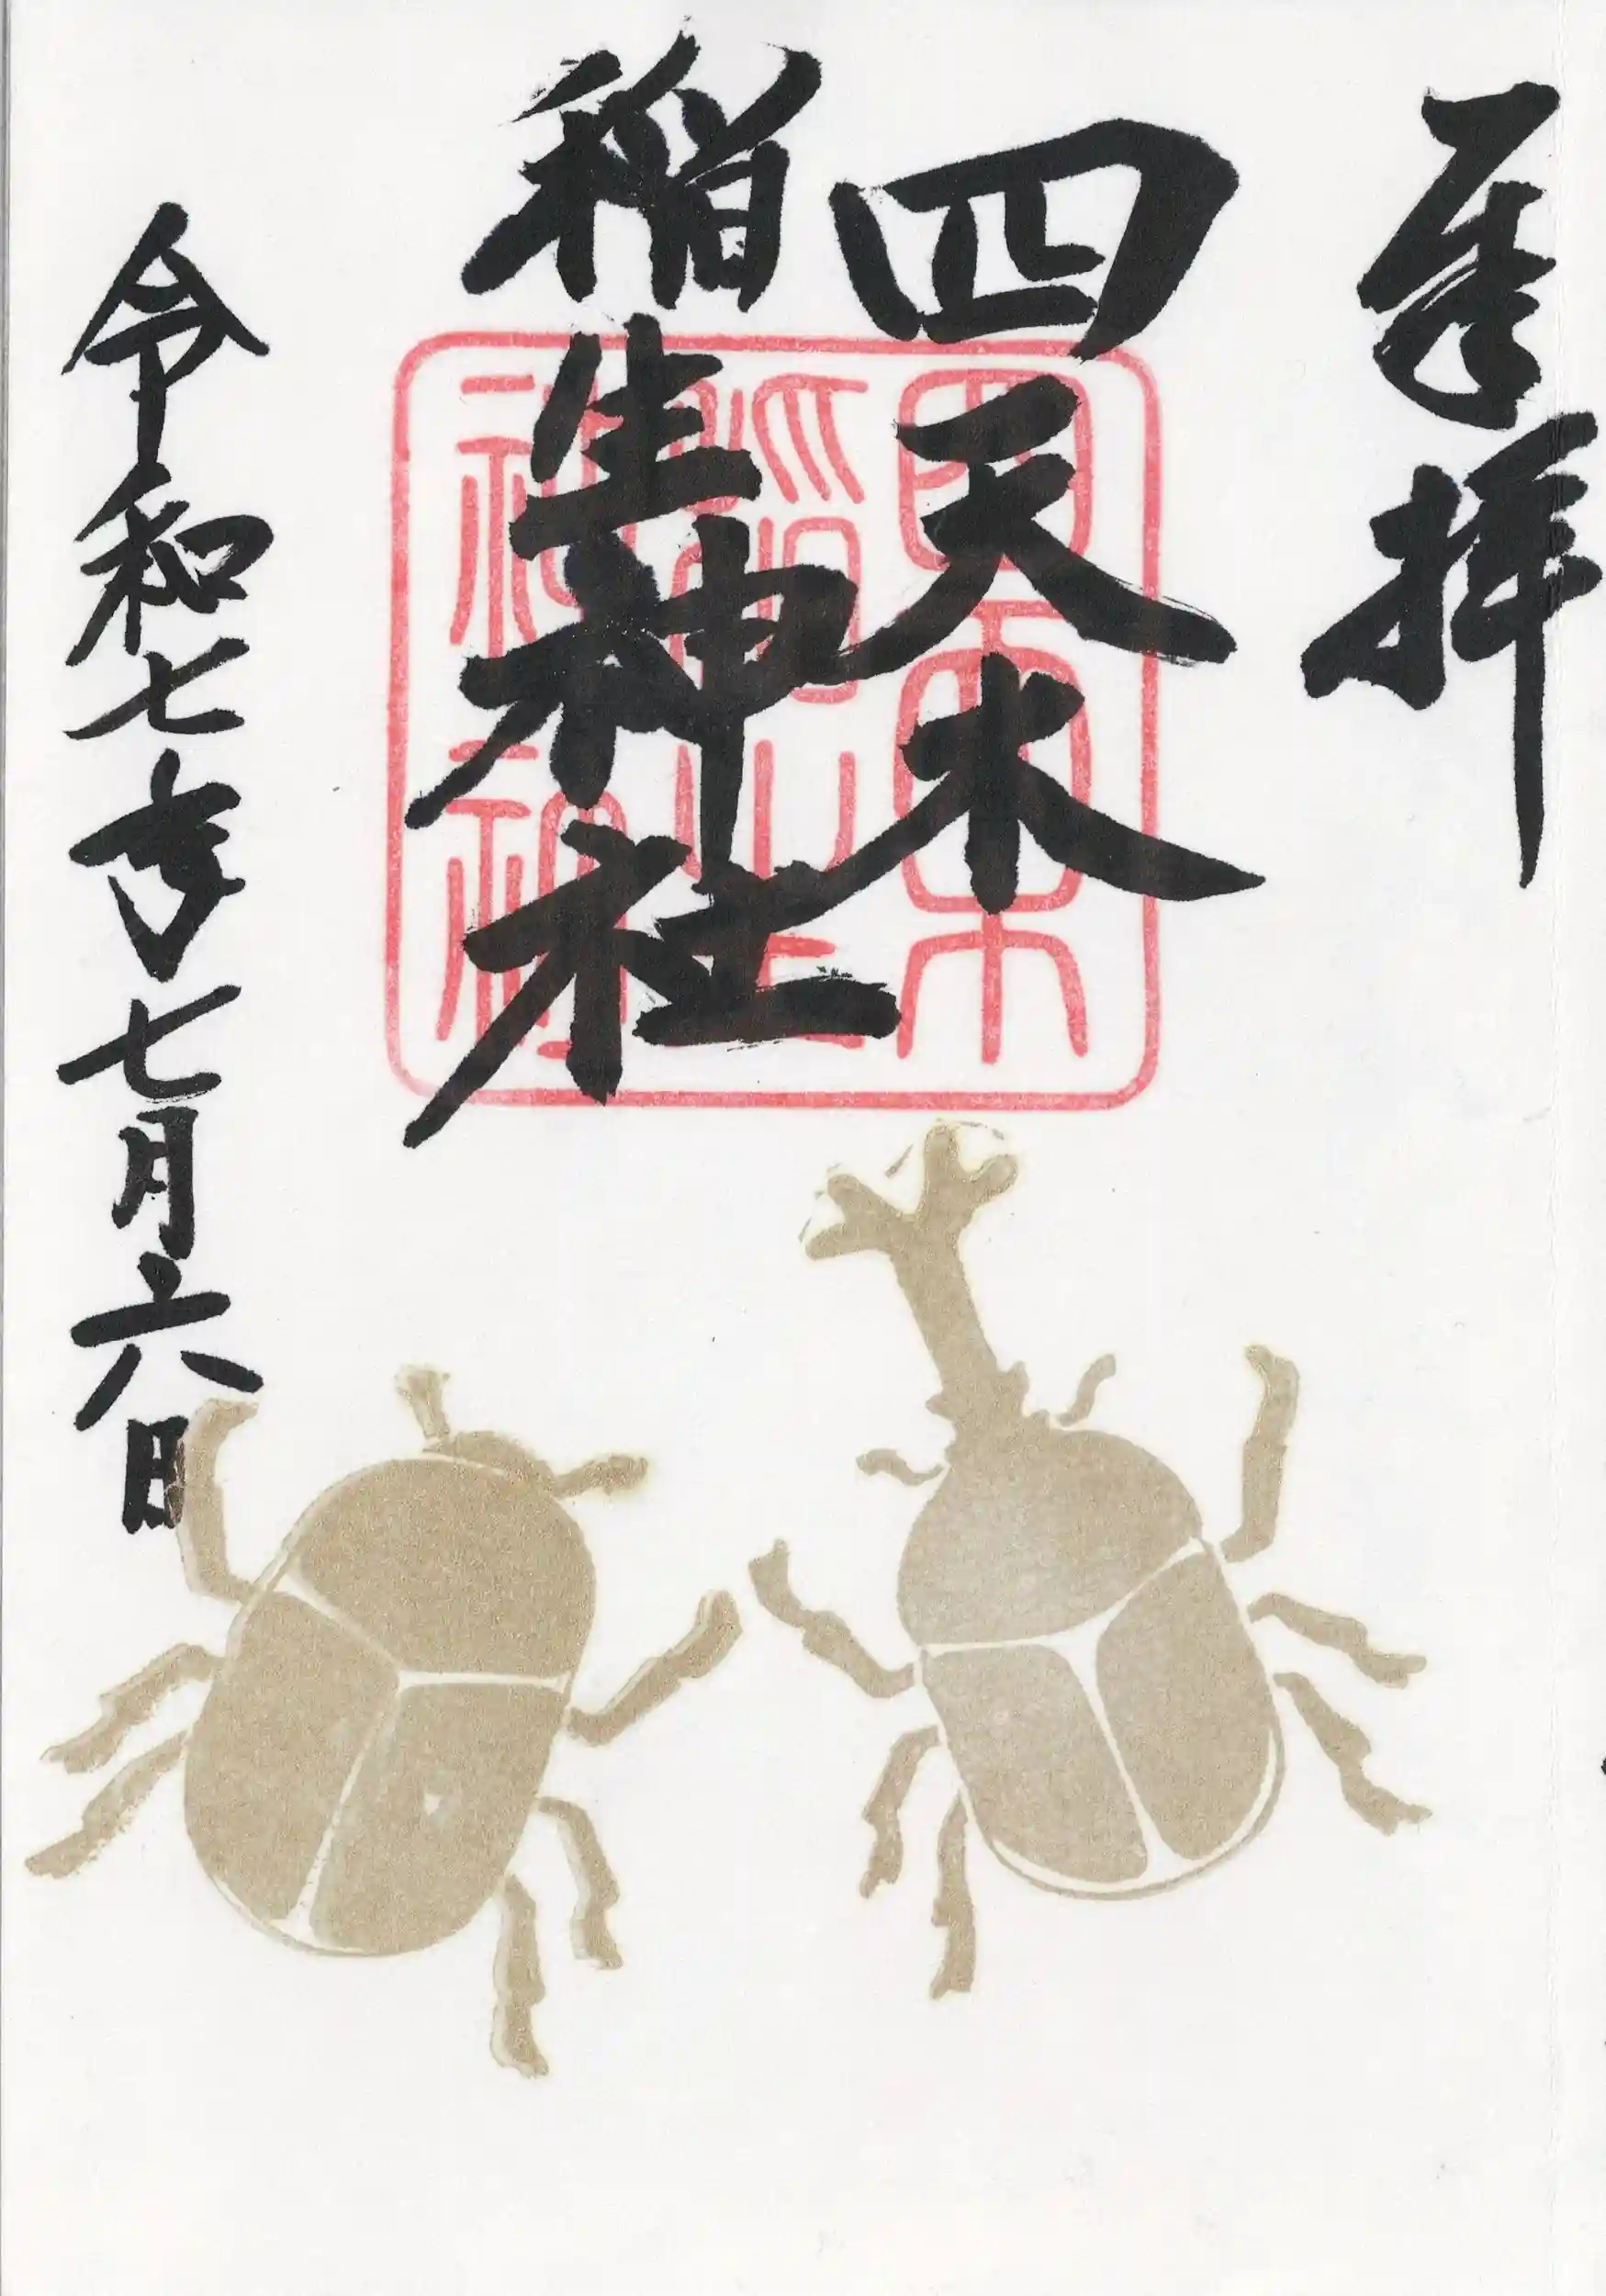 奉拝
四天木
稲生神社
令和七年七月六日
四天木
稲生
神社